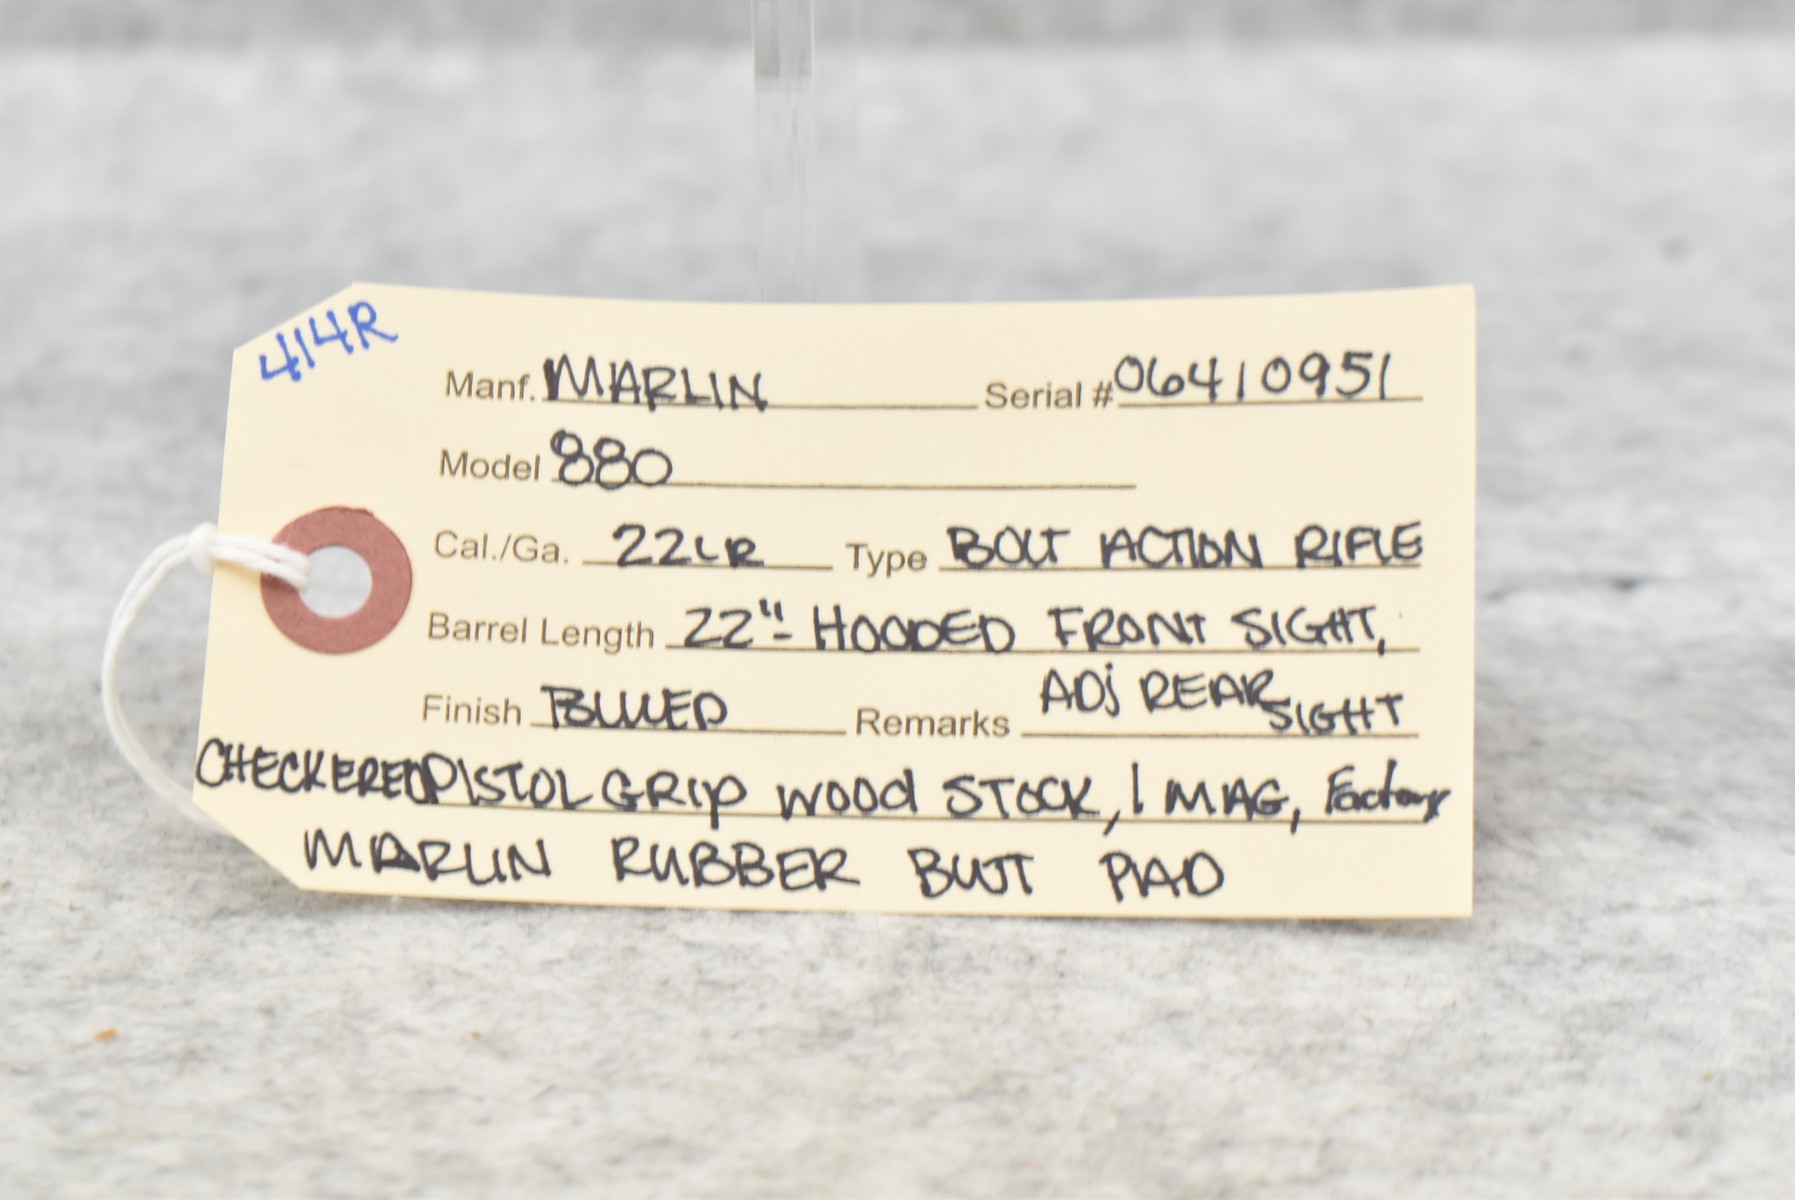 414R
Manf. MARLIN Serial # 06410951
Model 880
Cal./Ga. 22LR Type BOLT ACTION RIFLE
Barrel Length 22"- HOODED FRONT SIGHT,
Finish BLUED Remarks ADJ REAR SIGHT
CHECKERED PISTOL GRIP WOOD STOCK, 1 MAG, Factory
MARLIN RUBBER BUTT PAD